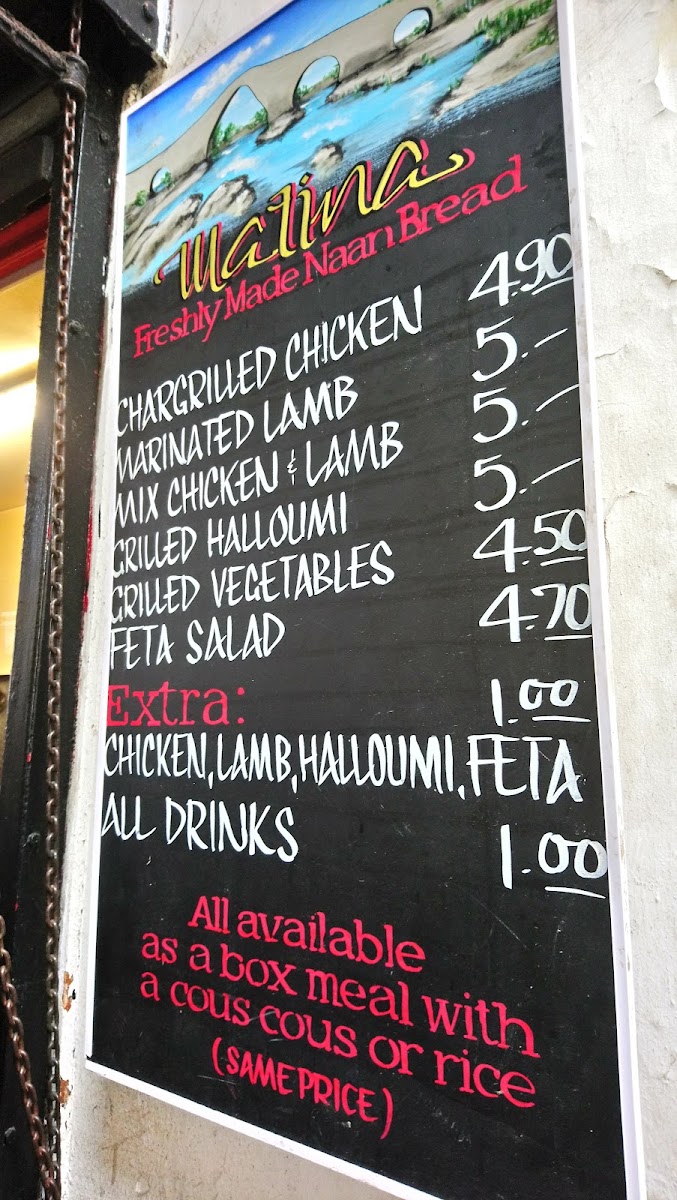 Matina
Freshly Made Naan Bread
CHARGRILLED CHICKEN 4.90
MARINATED LAMB 5.-
MIX CHICKEN & LAMB 5.-
GRILLED HALLOUMI 5.-
GRILLED VEGETABLES 4.50
FETA SALAD 4.70
Extra: 1.00
CHICKEN, LAMB, HALLOUMI, FETA
ALL DRINKS 1.00
All available
as a box meal with
a cous cous or rice
(SAME PRICE)